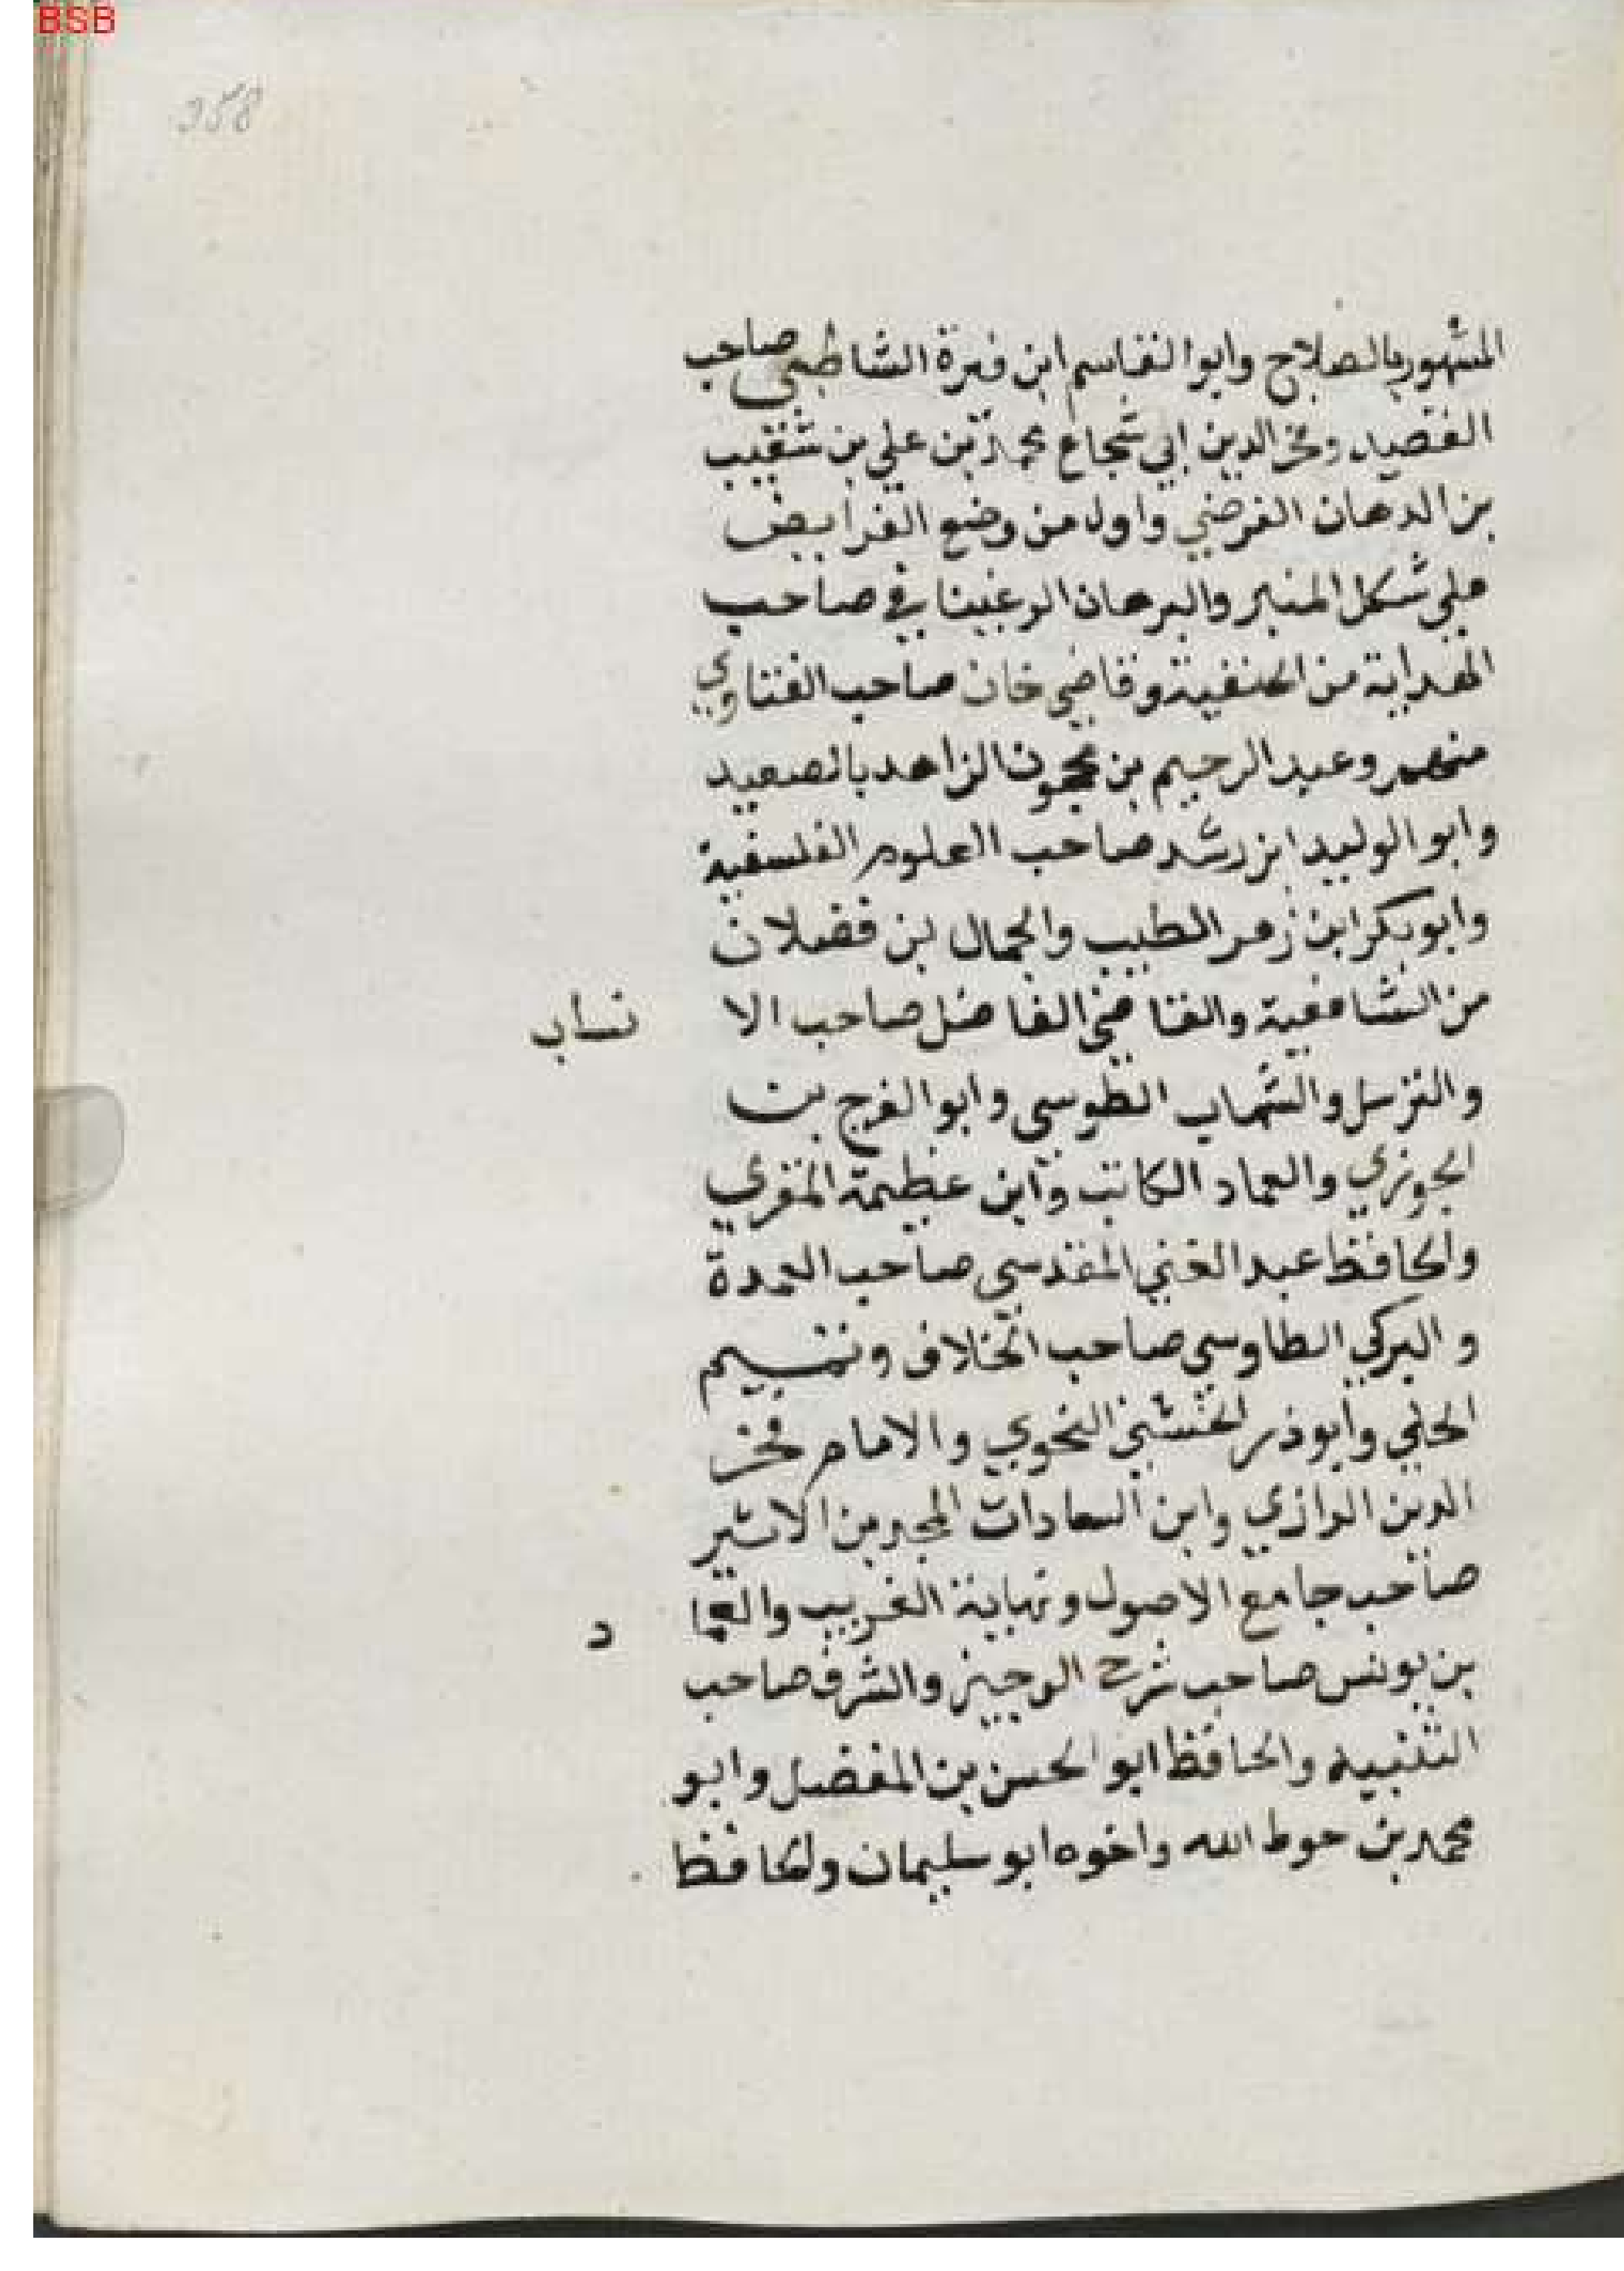 BSB
358
المشهور بالصلاح وابو القاسم ابن فيرة الشاطبي صاحب
القصيد وفخر الدين ابي شجاع محمد بن علي بن شقيب
بن الدهان الفرضي واول من وضع الفرايض
على شكل المنبر والبرهان المرغينا في صاحب
الهداية من الحنفية وقاضي خان صاحب الفتاوي
منهم وعبد الرحيم بن حجون الزاهد بالصعيد
وابو الوليد ابن رشد صاحب العلوم الفلسفية
وابو بكر ابن زهر الطبيب والجمال بن فضلان
من الشافعية والقاضي الفاضل صاحب الا نساب
والترسل والشهاب الطوسي وابو الفرج بن
الجوزي والعماد الكاتب وابن عظيمة المقري
والحافظ عبد الغني المقدسي صاحب العمدة
والبركي الطاوسي صاحب الخلاف وتميم
الحلي وابو ذر الخشني النحوي والامام فخر
الدين الرازي وابن السعادات المجد بن الاثير
صاحب جامع الاصول ونهاية الغريب والعما د
بن يونس صاحب شرح الوجيز والشرف صاحب
التنبيه والحافظ ابو الحسن بن المفضل وابو
محمد بن حوط الله واخوه ابو سليمان والحافظ